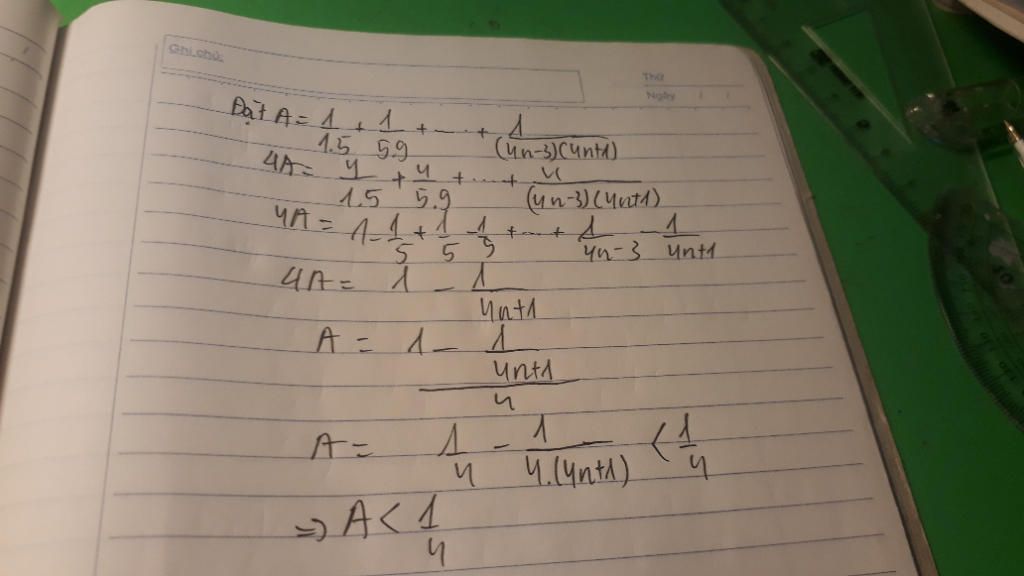 Ghi chú:
Thứ
Ngày / /
Đặt A = 1/1.5 + 1/5.9 + ... + 1/(4n-3)(4n+1)
4A = 4/1.5 + 4/5.9 + ... + 4/(4n-3)(4n+1)
4A = 1 - 1/5 + 1/5 - 1/9 + ... + 1/4n-3 - 1/4n+1
4A = 1 - 1/4n+1
A = (1 - 1/4n+1)/4
A = 1/4 - 1/4.(4n+1) < 1/4
=> A < 1/4